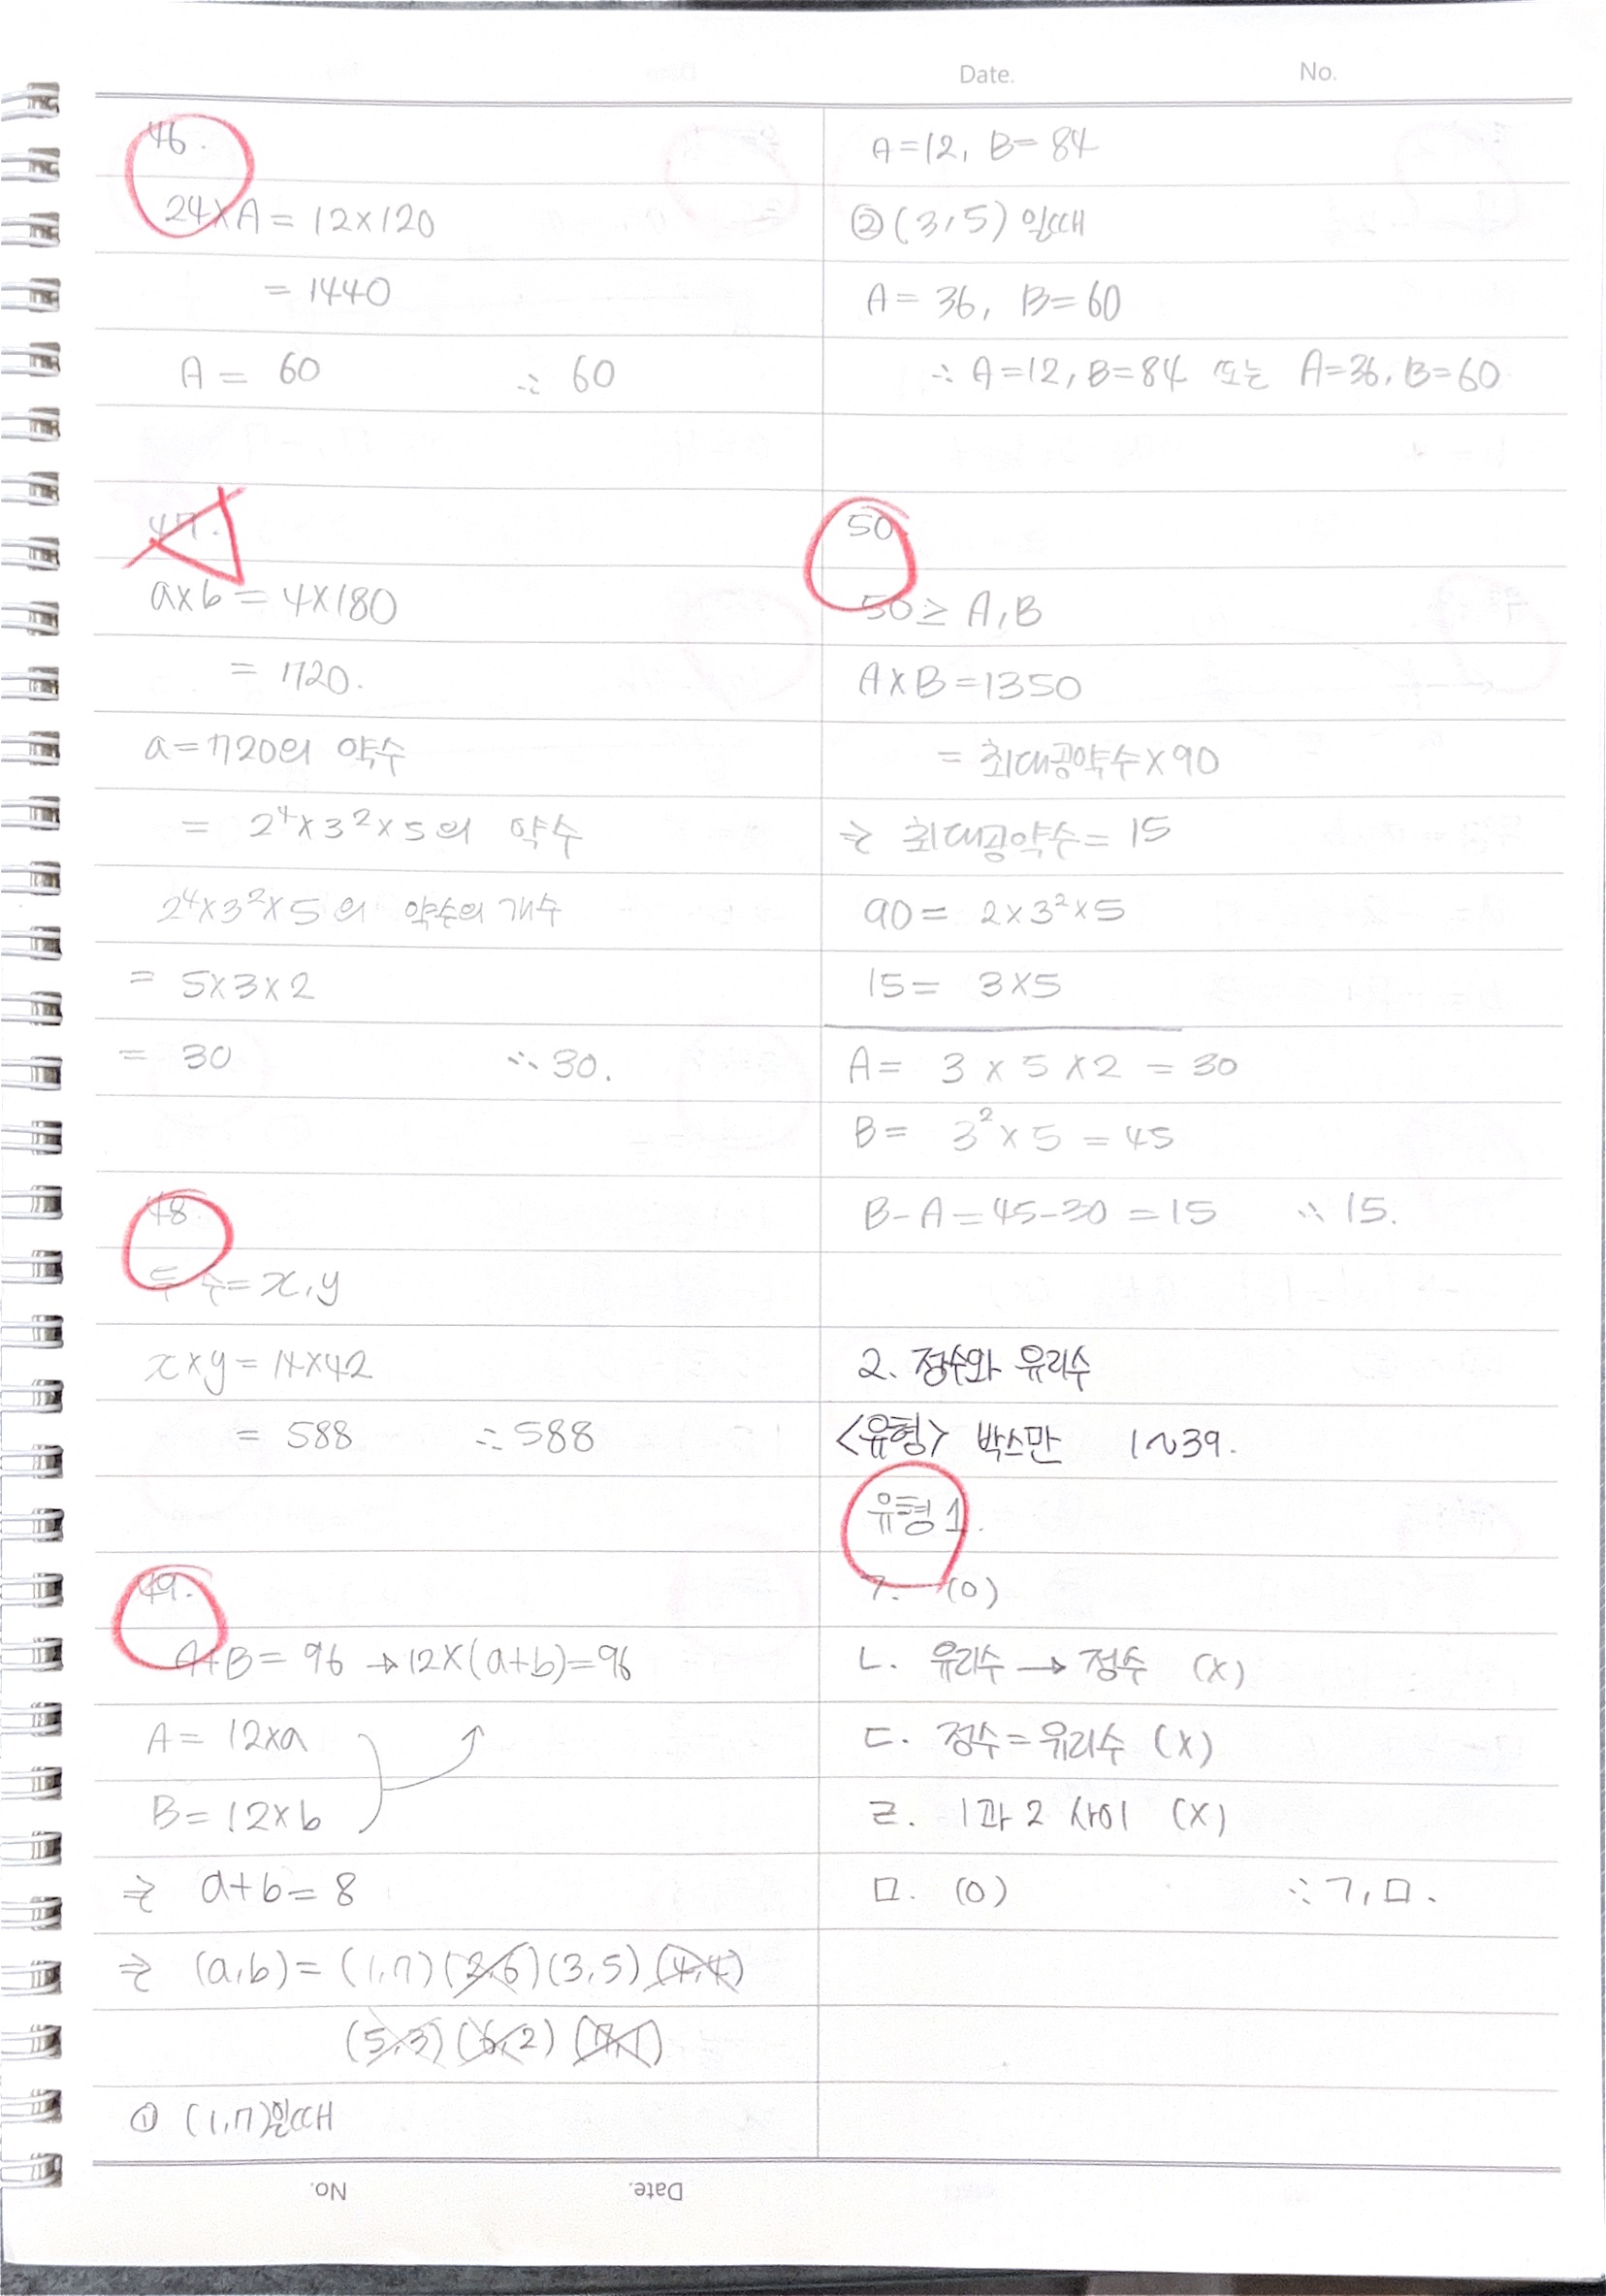 Date. No.
46.
24×A = 12×120
= 1440
A = 60 ∴ 60
47.
a×b = 4×180
= 720.
a = 720의 약수
= 2⁴×3²×5의 약수
2⁴×3²×5의 약수의 개수
= 5×3×2
= 30 ∴ 30.
48.
두 수 = x, y
x×y = 14×42
= 588 ∴ 588
49.
A+B = 96 → 12×(a+b) = 96
A = 12×a
B = 12×b
⇒ a+b = 8
⇒ (a,b) = (1,7) (2,6) (3,5) (4,4)
(5,3) (6,2) (7,1)
① (1,7)일때
A=12, B=84
② (3,5) 일때
A = 36, B = 60
∴ A=12, B=84 또는 A=36, B=60
50.
50 ≥ A, B
A×B = 1350
= 최대공약수×90
⇒ 최대공약수 = 15
90 = 2×3²×5
15 = 3×5
A = 3×5×2 = 30
B = 3²×5 = 45
B-A = 45-30 = 15 ∴ 15.
2. 정수와 유리수
<유형> 박스만 1~39.
유형 1.
ㄱ. (0)
ㄴ. 유리수 → 정수 (X)
ㄷ. 정수 = 유리수 (X)
ㄹ. 1과 2 사이 (X)
ㅁ. (0) ∴ ㄱ, ㅁ.
Date. No.